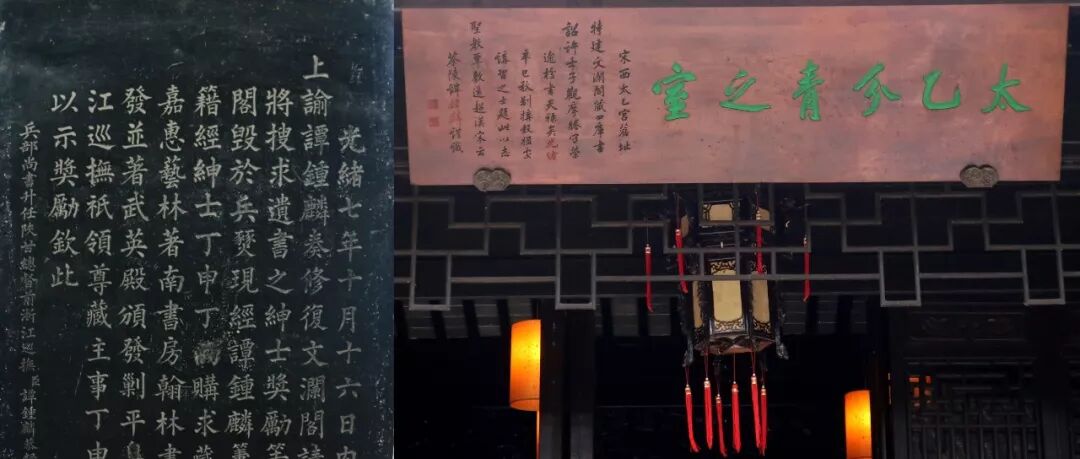 光緒七年十月十六日内
上諭譚鍾麟奏修復文瀾閣請
將搜求遺書之紳士獎勵等
閣毀於兵燹現經譚鍾麟籌
籍經紳士丁申丁購求藏
嘉惠藝林著南書房翰林書
發並著武英殿頒發剿平
江巡撫祇領尊藏主事丁申
以示獎勵欽此
兵部尚書升任陝甘總督前浙江巡撫臣譚鍾麟恭
太乙分青之室
宋西太乙宮舊址
特建文瀾閣藏四庫書
詔許士子觀摩榮
書天祿矣光緒
辛巳秋
講習之士題此以志
聖教覃敷遠超漢宋云
茶陵譚鍾麟謹識